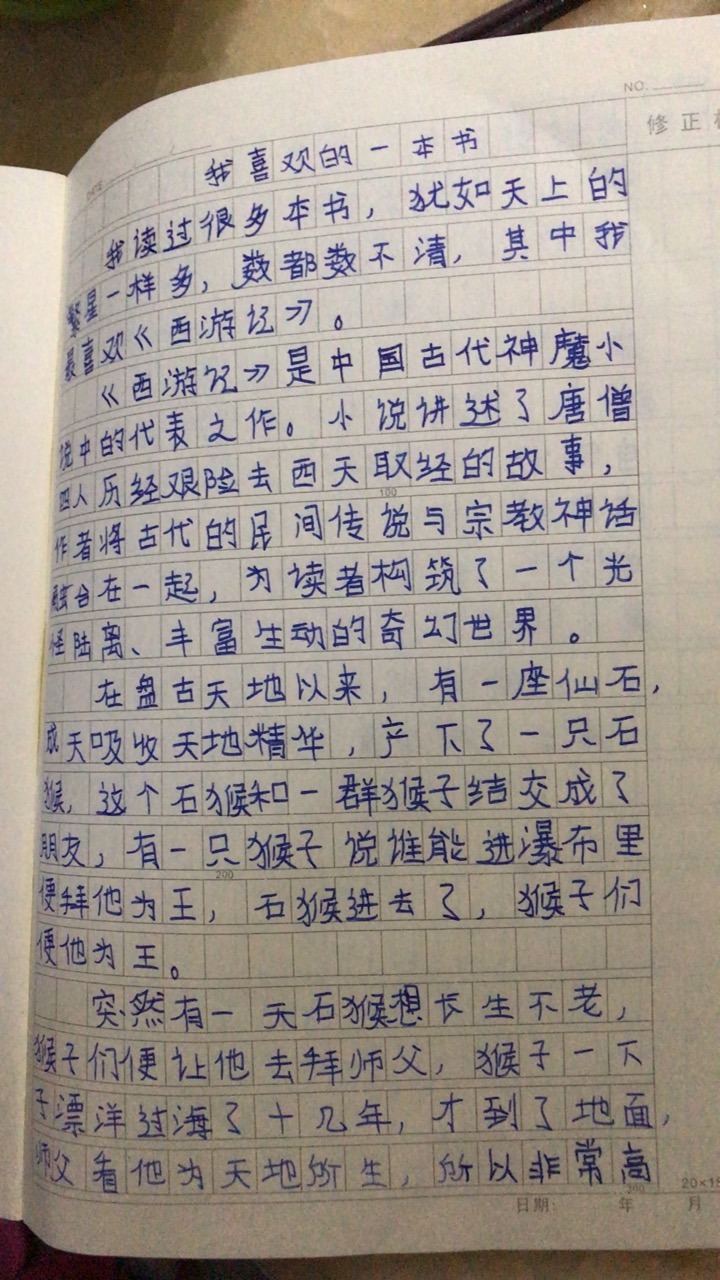 NO.
修正
DATE
我喜欢的一本书
我读过很多本书，犹如天上的
繁星一样多，数都数不清，其中我
最喜欢《西游记》。
《西游记》是中国古代神魔小
说中的代表之作。小说讲述了唐僧
四人历经艰险去西天取经的故事，
100
作者将古代的民间传说与宗教神话
融合在一起，为读者构筑了一个光
怪陆离、丰富生动的奇幻世界。
在盘古天地以来，有一座仙石，
成天吸收天地精华，产下了一只石
猴，这个石猴和一群猴子结交成了
朋友，有一只猴子说谁能进瀑布里
200
便拜他为王，石猴进去了，猴子们
便他为王。
突然有一天石猴想长生不老，
猴子们便让他去拜师父，猴子一下
子漂洋过海了十几年，才到了地面，
师父看他为天地所生，所以非常高
300
20×15
日期： 年 月